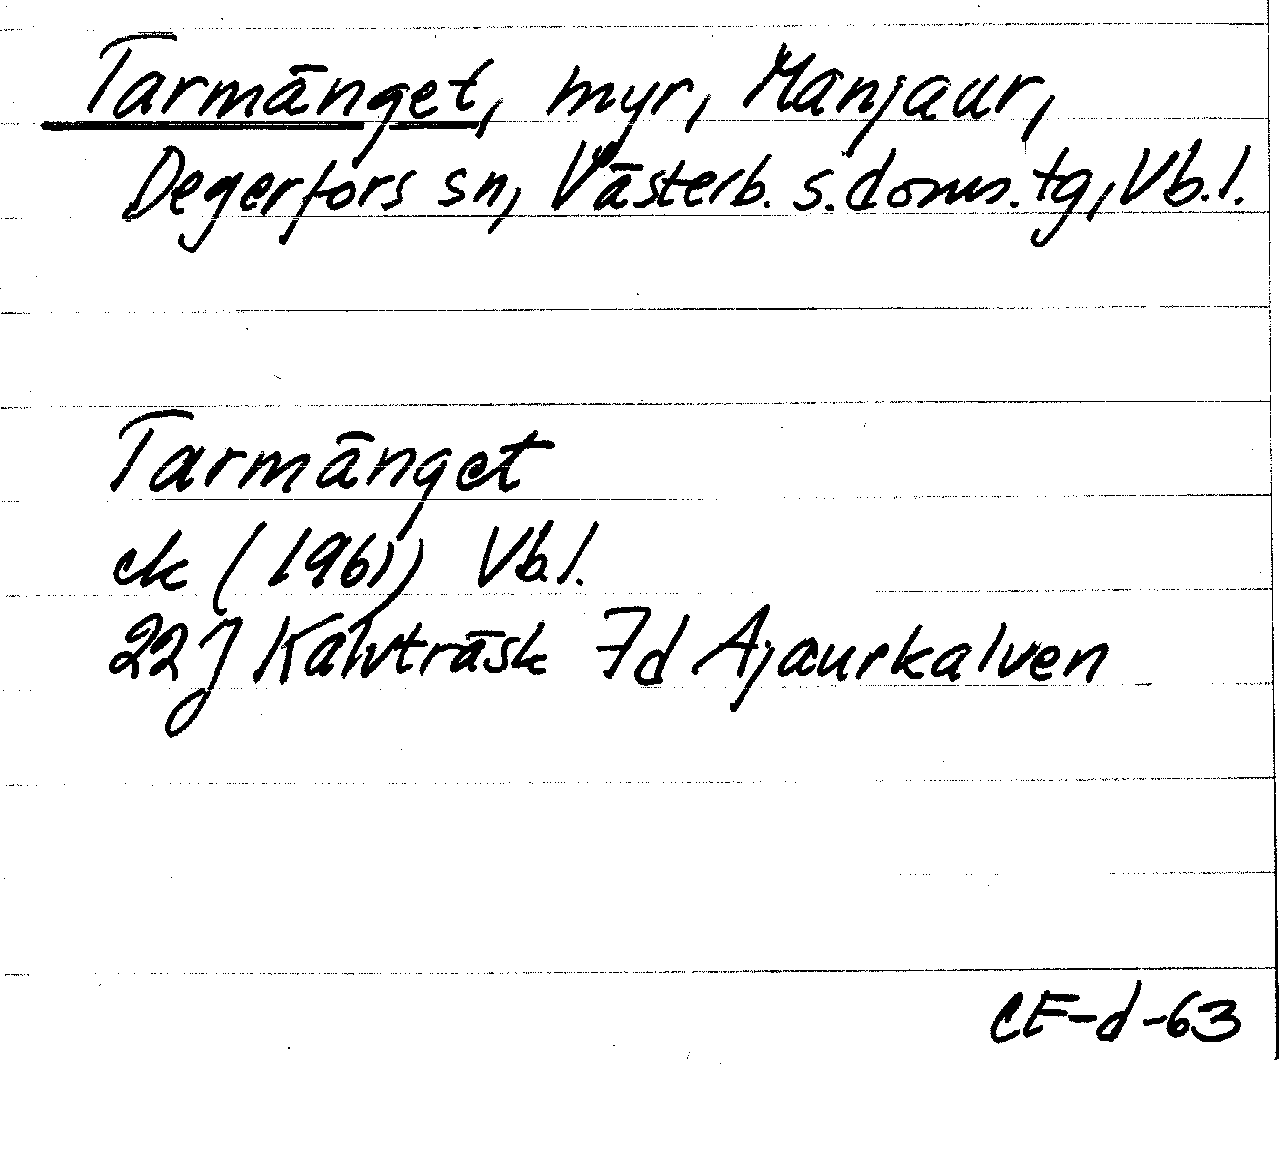 Tarmänget, myr, Manjaur,
Degerfors sn, Västerb. s. doms. tg, Vb. l.
Tarmänget
ek (1961) Vb. l.
22 J Kalvträsk 7d Ajaurkalven
CE-d-63